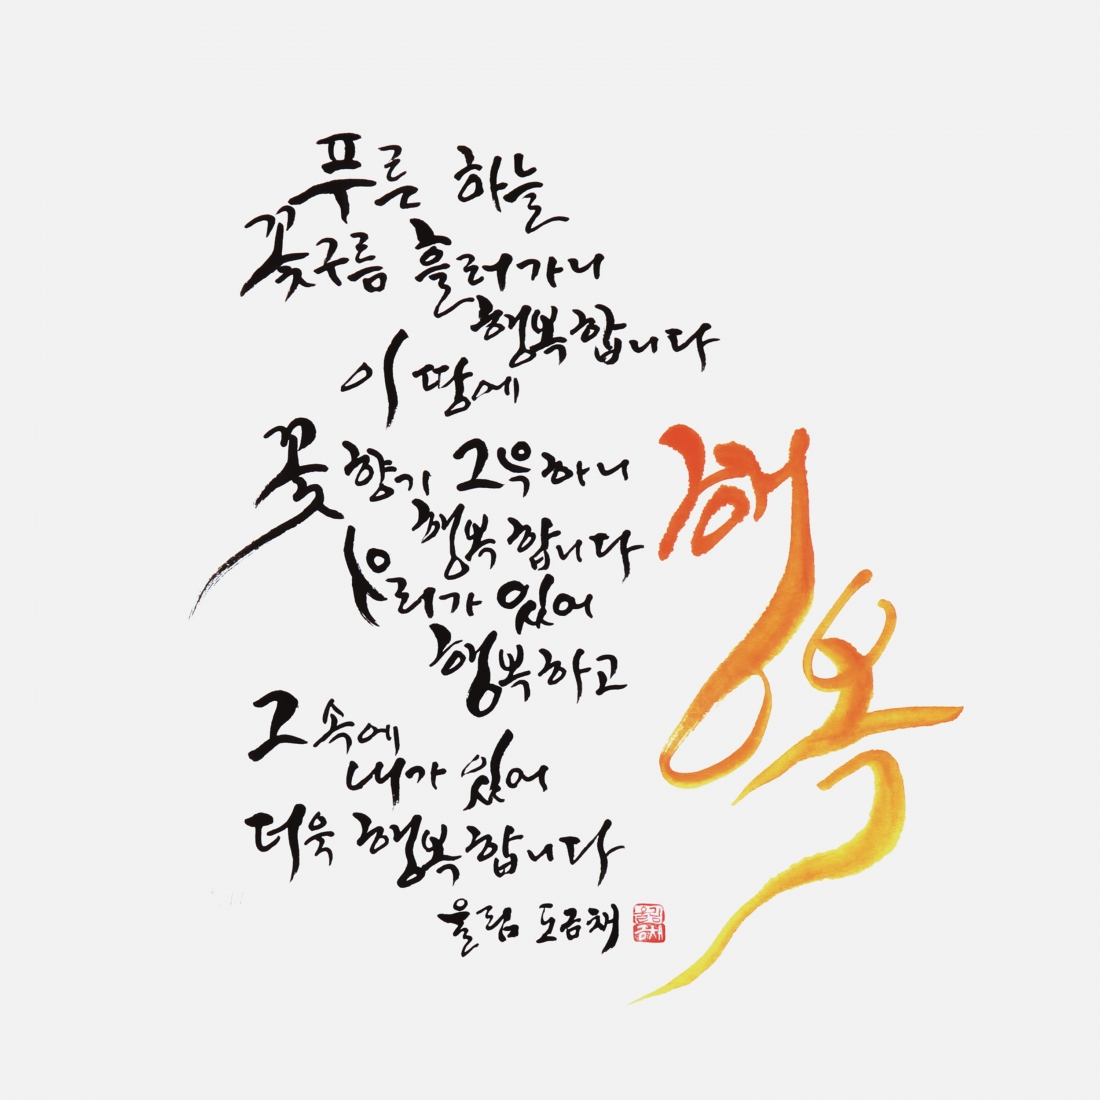 푸른 하늘
꽃구름 흘러가니
행복합니다
이 땅에
꽃향기 그윽하니
행복합니다
우리가 있어
행복하고
그 속에
내가 있어
더욱 행복합니다
울림 도금채
울림
금채
행복